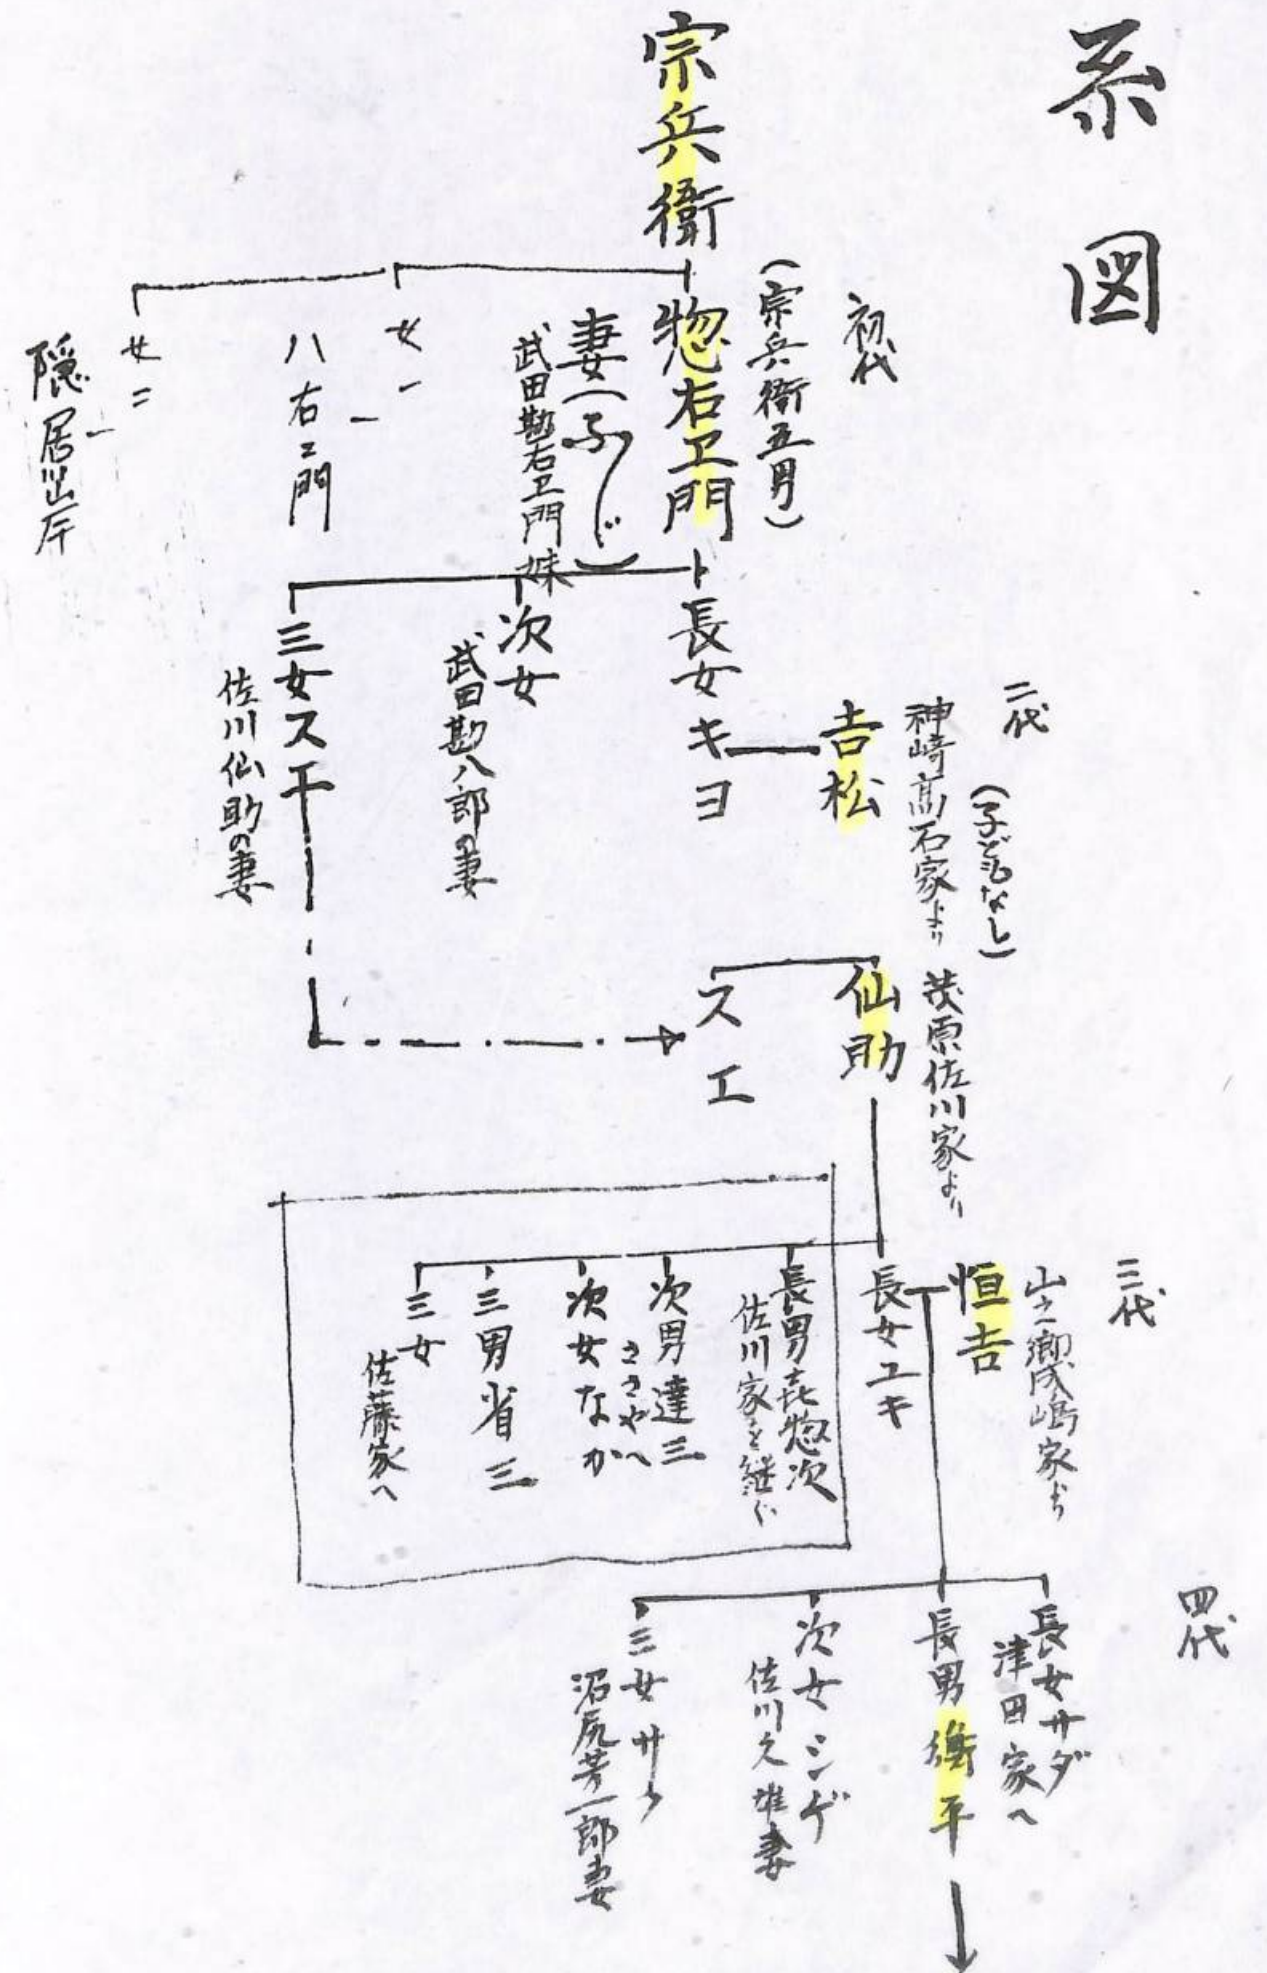 系図
宗兵衛
初代
(宗兵衛五男)
惣右エ門
妻(ふじ)
武田勘右エ門妹
女一
八右エ門
女二
隠居
長女キヨ
次女
武田勘八郎の妻
三女スエ
佐川仙助の妻
二代
(子どもなし)
神崎高石家より
吉松
茂原佐川家より
仙助
スエ
三代
山之郷成嶋家より
恒吉
長女ユキ
長男㐂惣次
佐川家を継ぐ
次男達三
ささやへ
次女なか
三男省三
三女
佐藤家へ
四代
長女サダ
津田家へ
長男 平
次女シゲ
佐川文雄妻
三女サク
沼尻芳一郎妻